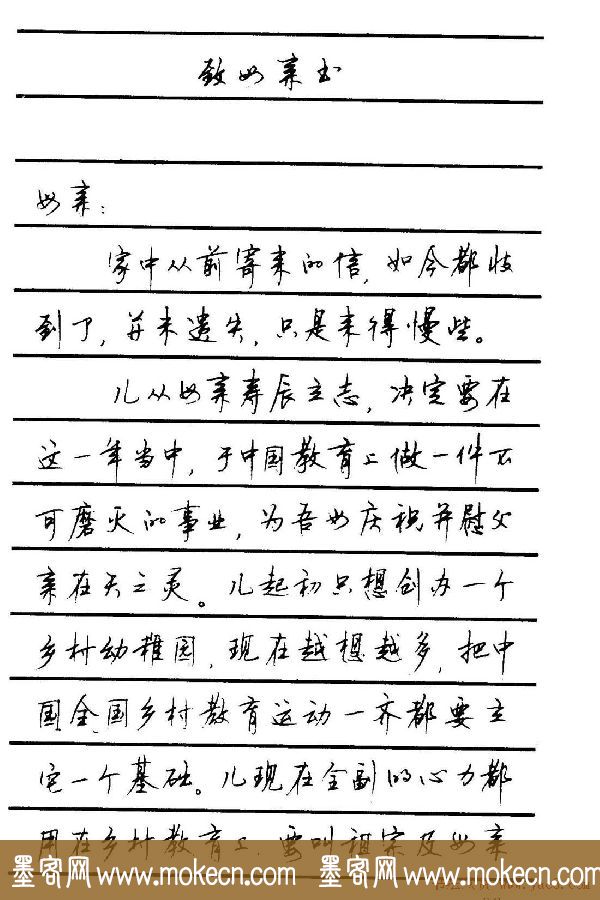 致母亲书
母亲：
家中从前寄来的信，如今都收
到了，并未遗失，只是来得慢些。
儿从母亲寿辰立志，决定要在
这一年当中，于中国教育上做一件不
可磨灭的事业，为吾母庆祝并慰父
亲在天之灵。儿起初只想创办一个
乡村幼稚园，现在越想越多，把中
国全国乡村教育运动一齐都要立
定一个基础。儿现在全副的心力都
用在乡村教育上，要叫祖宗及母亲
墨客网 www.mokecn.com 墨客网 www.mokecn.com